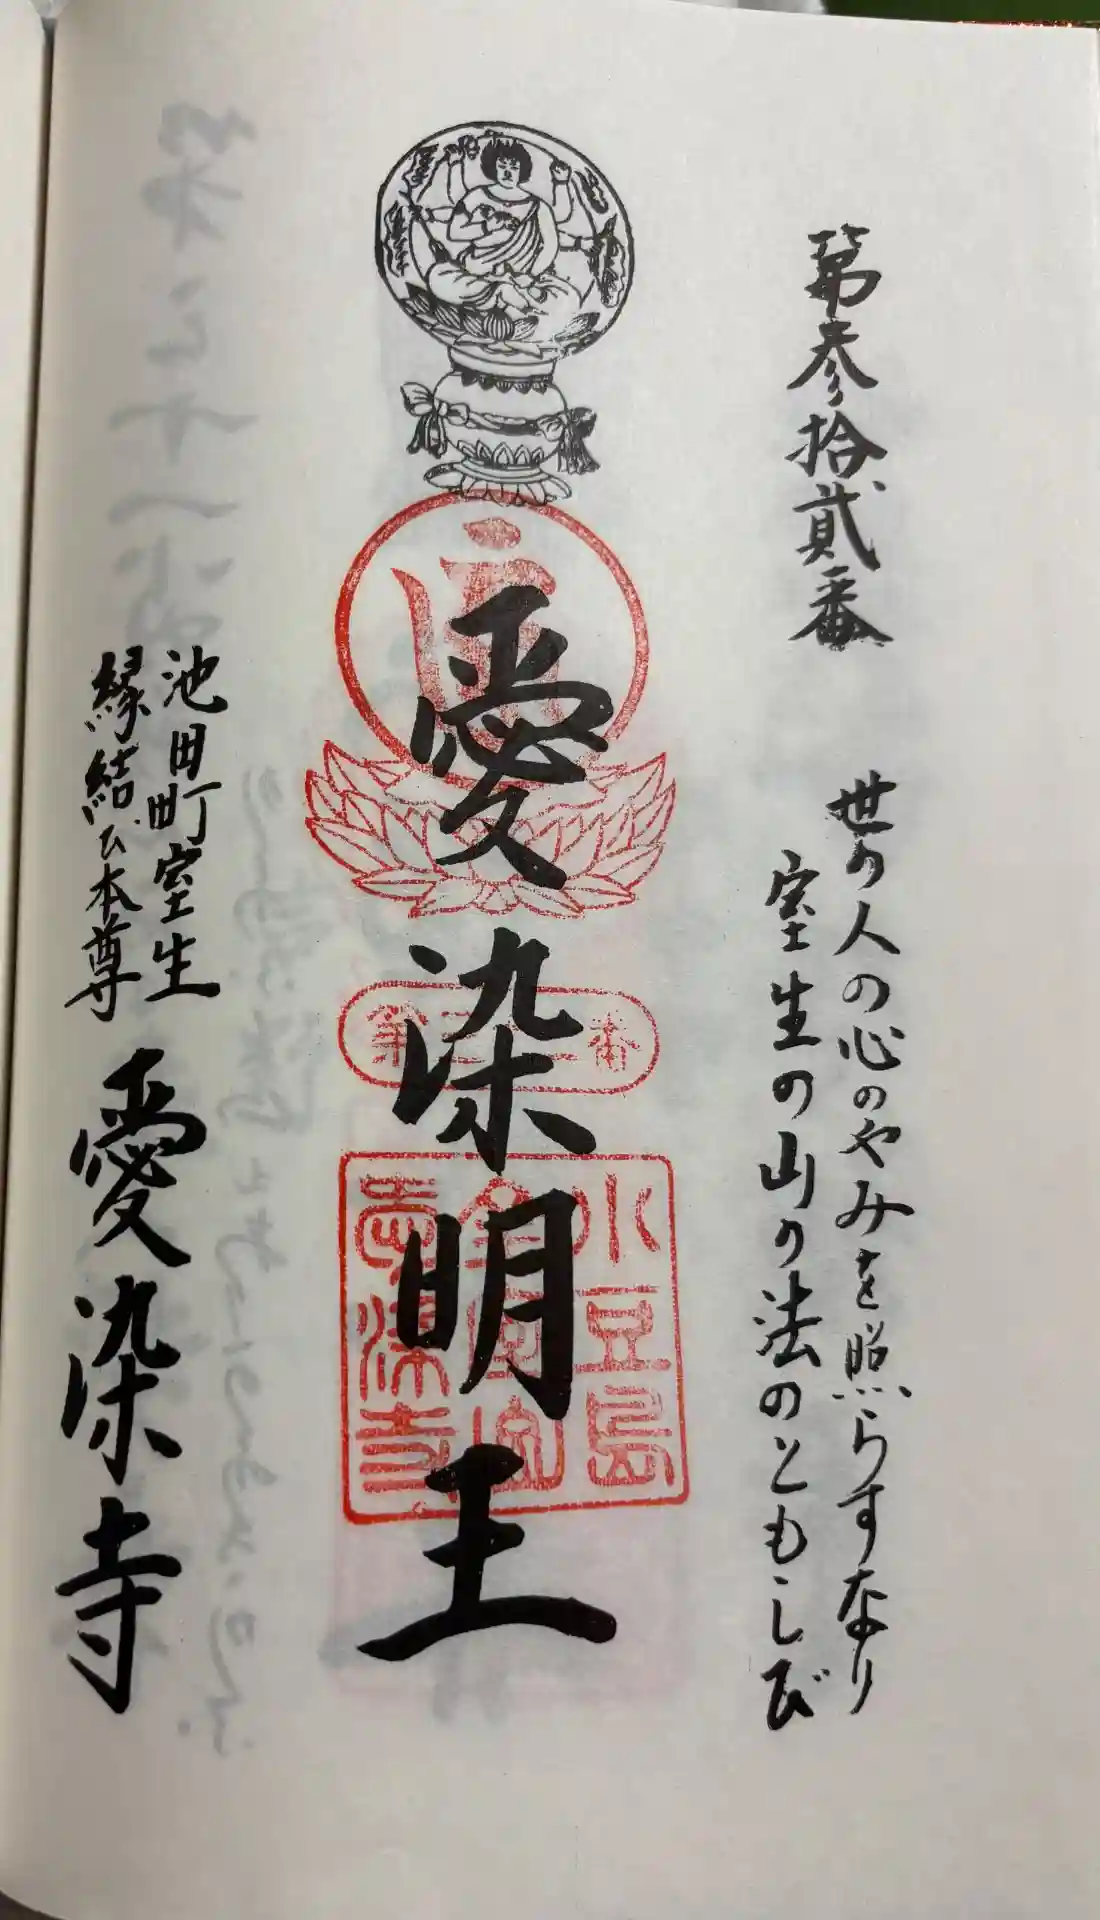 第参拾貳番
世の人の心のやみを照らすなり
室生の山の法のともしび
愛染明王
第三二番
小豆島
愛染寺
池田町室生
縁結び本尊
愛染寺